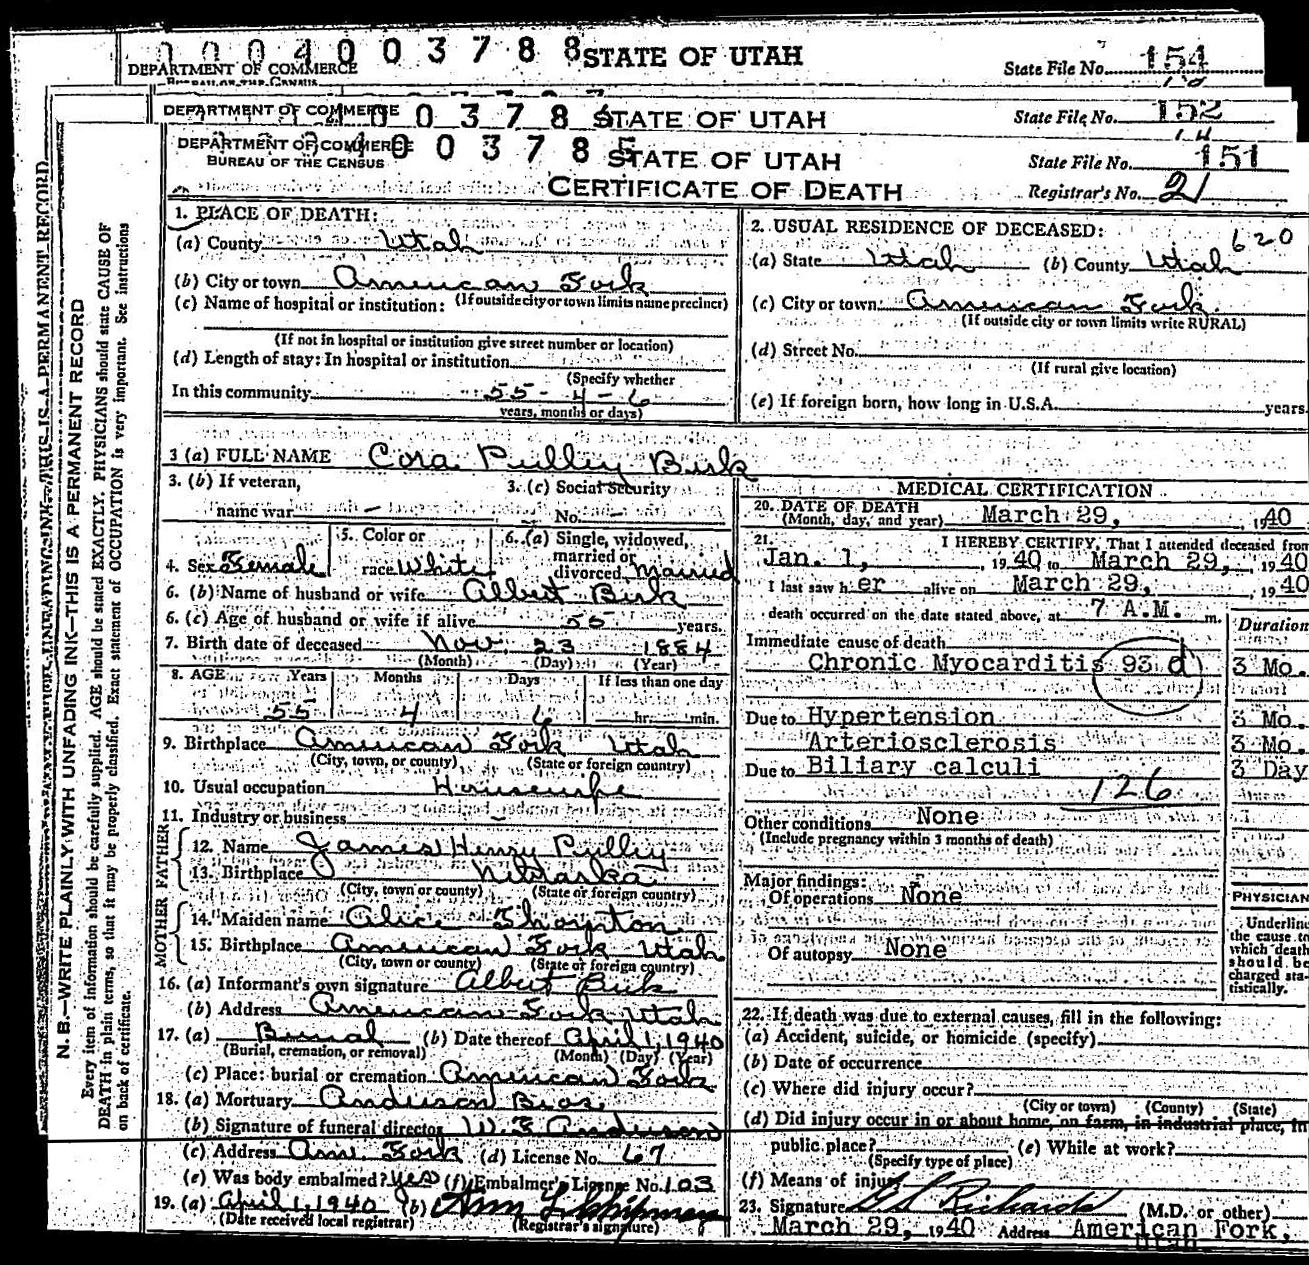 0004003788 STATE OF UTAH
DEPARTMENT OF COMMERCE
State File No. 154
DEPARTMENT OF COMMERCE
STATE OF UTAH
State File No. 152
DEPARTMENT OF COMMERCE
BUREAU OF THE CENSUS
STATE OF UTAH
State File No. 151
CERTIFICATE OF DEATH
Registrar's No. 21
1. PLACE OF DEATH:
(a) County Utah
(b) City or town American Fork
(If outside city or town limits name precinct)
(c) Name of hospital or institution:
(If not in hospital or institution give street number or location)
(d) Length of stay: In hospital or institution
(Specify whether
In this community 55-4-6
years, months or days)
2. USUAL RESIDENCE OF DECEASED: 620
(a) State Utah (b) County Utah
(c) City or town: American Fork
(If outside city or town limits write RURAL)
(d) Street No.
(If rural give location)
(e) If foreign born, how long in U.S.A. years.
3 (a) FULL NAME Cora Pulley Birk
3. (b) If veteran,
name war –
3. (c) Social Security
No. –
4. Sex Female
5. Color or
race White
6. (a) Single, widowed,
married or
divorced Married
6. (b) Name of husband or wife Albert Birk
6. (c) Age of husband or wife if alive 55 years.
7. Birth date of deceased Nov. 23 1884
(Month) (Day) (Year)
8. AGE Years Months Days If less than one day
55 4 6 hr. min.
9. Birthplace American Fork Utah
(City, town, or county) (State or foreign country)
10. Usual occupation Housewife
11. Industry or business –
FATHER
12. Name James Henry Pulley
13. Birthplace Nebraska
(City, town or county) (State or foreign country)
MOTHER
14. Maiden name Alice Thornton
15. Birthplace American Fork Utah
(City, town or county) (State or foreign country)
16. (a) Informant's own signature Albert Birk
(b) Address American Fork Utah
17. (a) Burial (b) Date thereof April 1, 1940
(Burial, cremation, or removal) (Month) (Day) (Year)
(c) Place: burial or cremation American Fork
18. (a) Mortuary Anderson Bros.
(b) Signature of funeral director W. E. Anderson
(c) Address Am. Fork (d) License No. 67
(e) Was body embalmed? Yes (f) Embalmer's License No. 103
19. (a) April 1, 1940 (b)
(Date received local registrar) (Registrar's signature)
MEDICAL CERTIFICATION
20. DATE OF DEATH
(Month, day, and year) March 29, 1940
21. I HEREBY CERTIFY, That I attended deceased from
Jan. 1, 1940 to March 29, 1940
I last saw her alive on March 29, 1940
death occurred on the date stated above, at 7 A.M. m.
Duration
Immediate cause of death
Chronic Myocarditis 93 d 3 Mo.
Due to Hypertension 3 Mo.
Arteriosclerosis 3 Mo.
Due to Biliary calculi 3 Day
126
Other conditions None
(Include pregnancy within 3 months of death)
Major findings:
Of operations None
Of autopsy None
PHYSICIAN
Underline
the cause to
which death
should be
charged sta-
tistically.
22. If death was due to external causes, fill in the following:
(a) Accident, suicide, or homicide (specify)
(b) Date of occurrence
(c) Where did injury occur?
(City or town) (County) (State)
(d) Did injury occur in or about home, on farm, in industrial place, in
public place? (e) While at work?
(Specify type of place)
(f) Means of injury
23. Signature Richards (M.D. or other)
March 29, 1940 Address American Fork,
Utah
N. B.—WRITE PLAINLY WITH UNFADING INK—THIS IS A PERMANENT RECORD
Every item of information should be carefully supplied. AGE should be stated EXACTLY. PHYSICIANS should state CAUSE OF
DEATH in plain terms, so that it may be properly classified. Exact statement of OCCUPATION is very important. See instructions
on back of certificate.